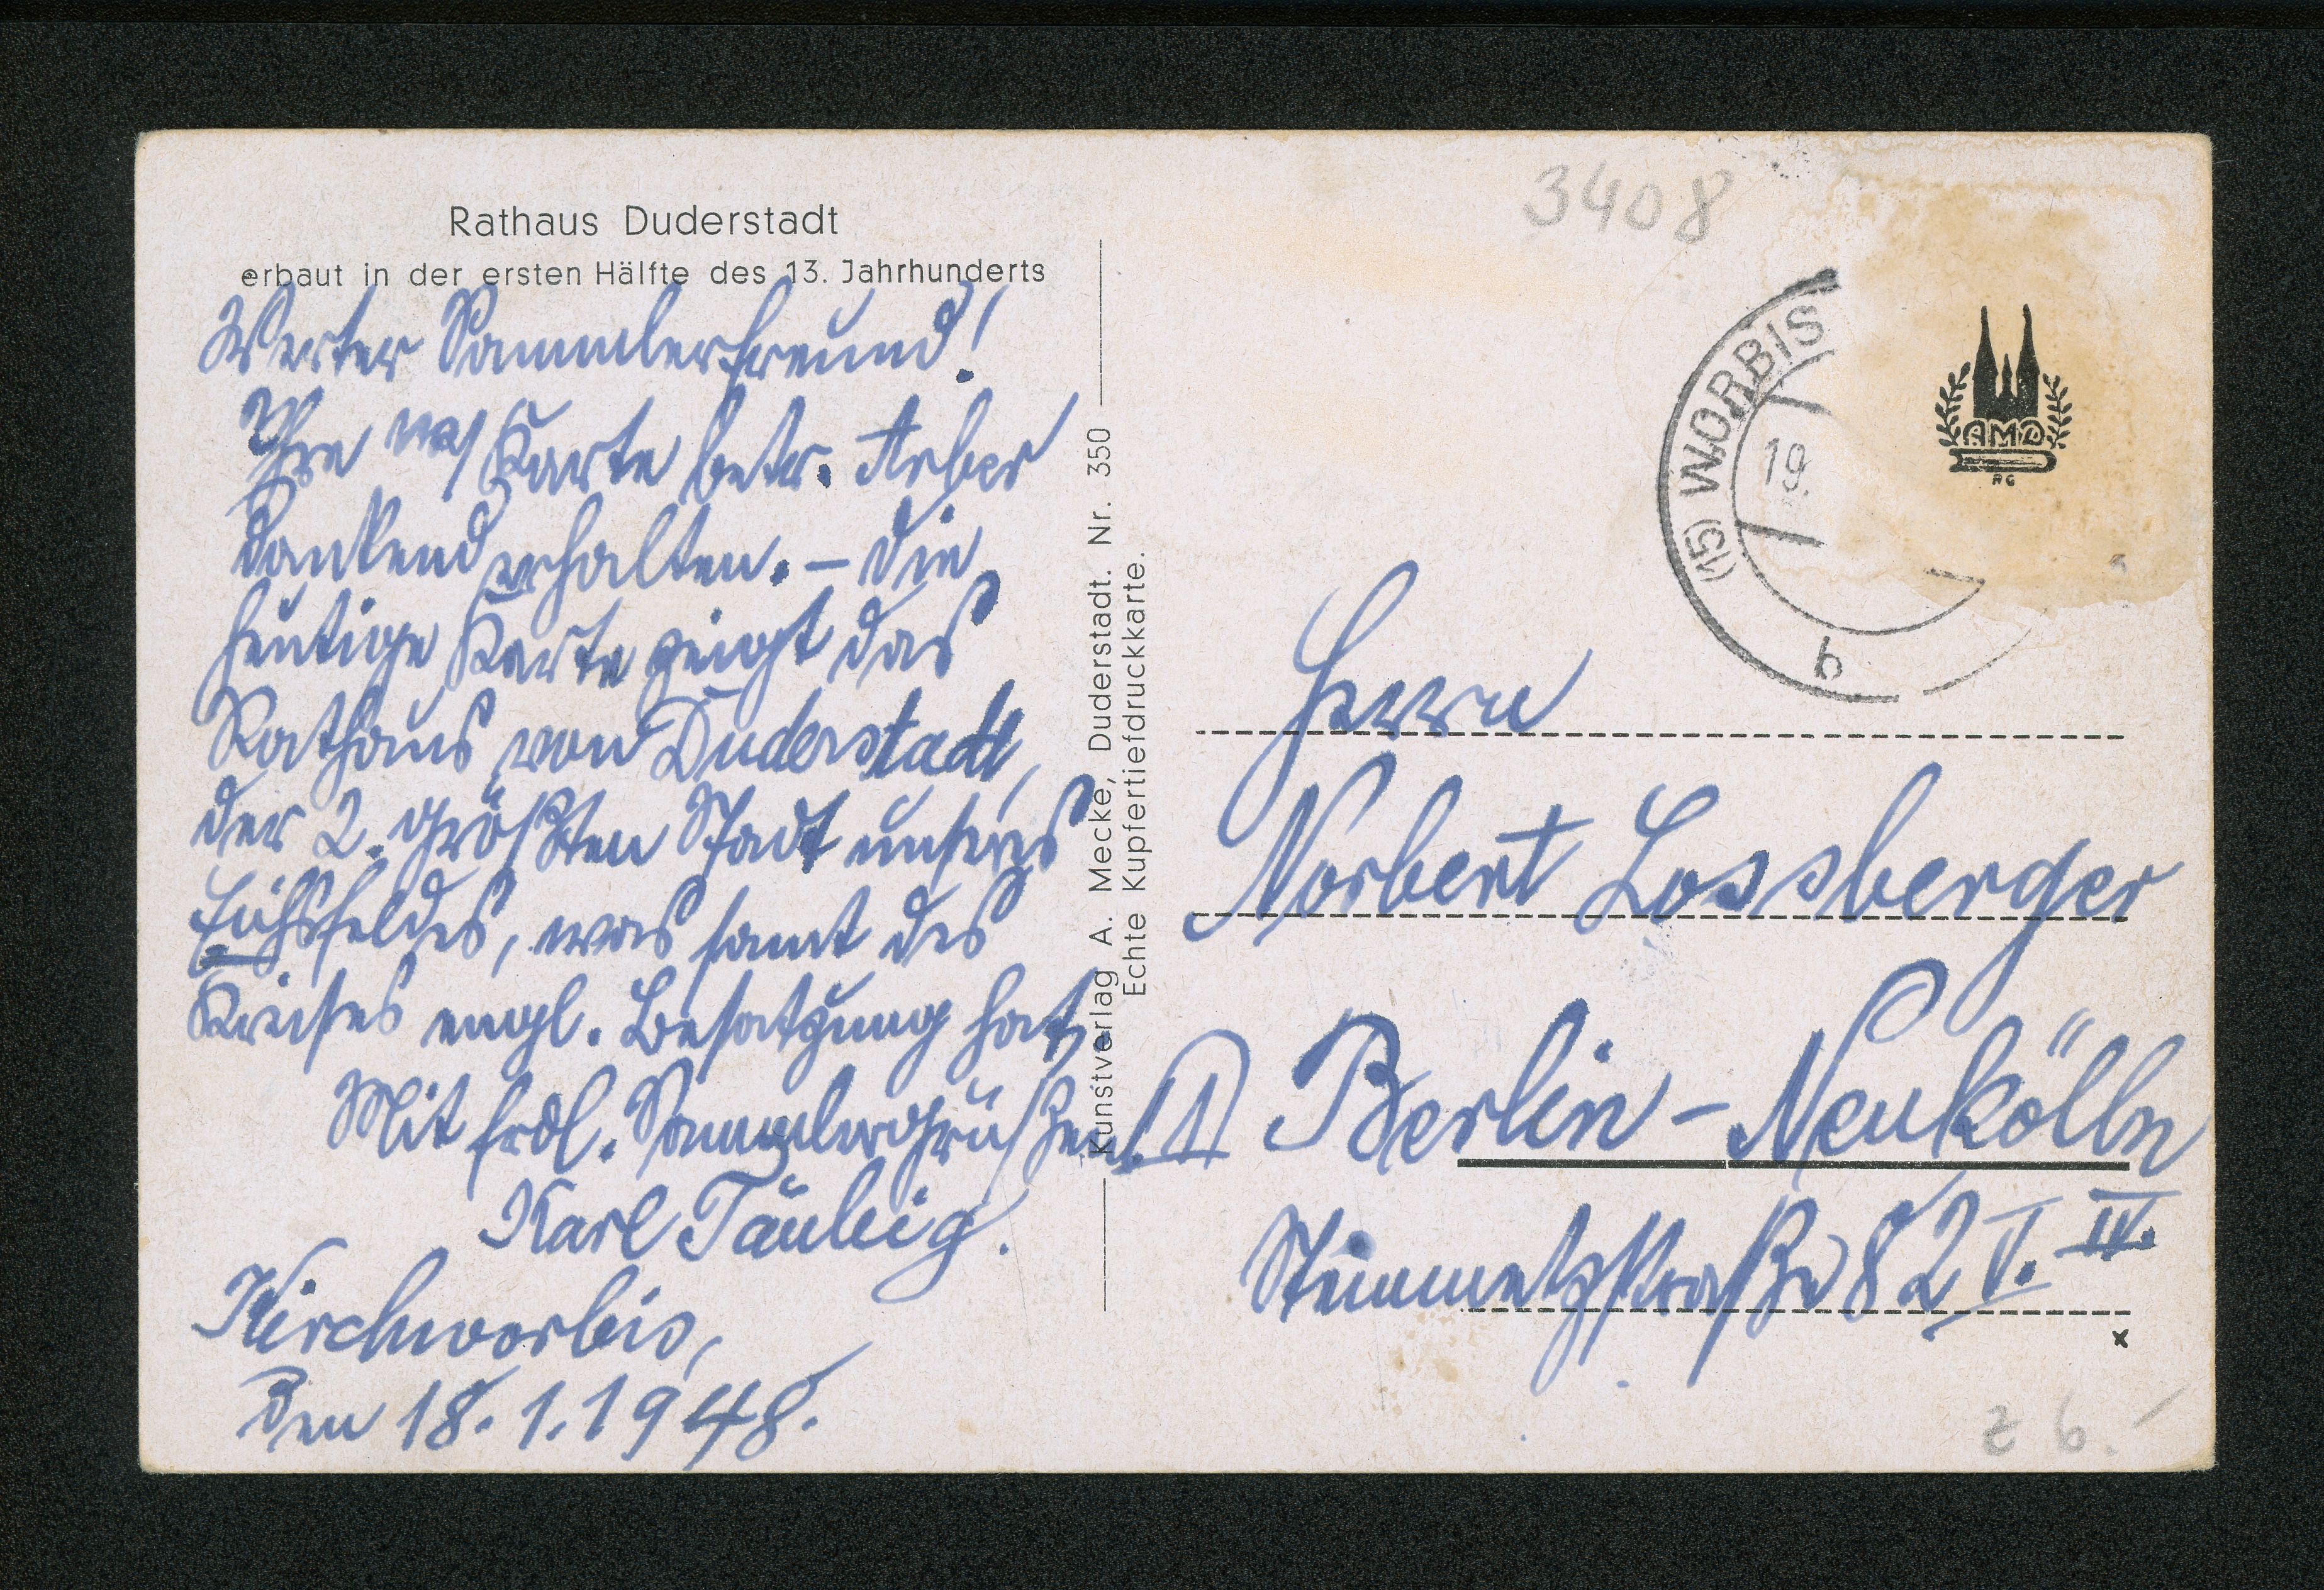 Rathaus Duderstadt
erbaut in der ersten Hälfte des 13. Jahrhunderts
Werter Sammlerfreund!
Ihre Karte betr. Arber
dankend erhalten. – Die
heutige Karte zeigt das
Rathaus von Duderstadt,
der 2. größten Stadt unseres
Eichsfeldes, was samt des
Kreises engl. Besatzung hat.
Mit frdl. Sammlergrüßen
Karl Täubig.
Kirchworbis,
Den 18.1.1948.
Kunstverlag A. Mecke, Duderstadt. Nr. 350
Echte Kupfertiefdruckkarte.
3408
(15) WORBIS
19
b
AMD
RG
Herrn
Norbert Lossberger
(1) Berlin-Neukölln
Steinmetzstraße 82 V. IV.
x
z 6.–